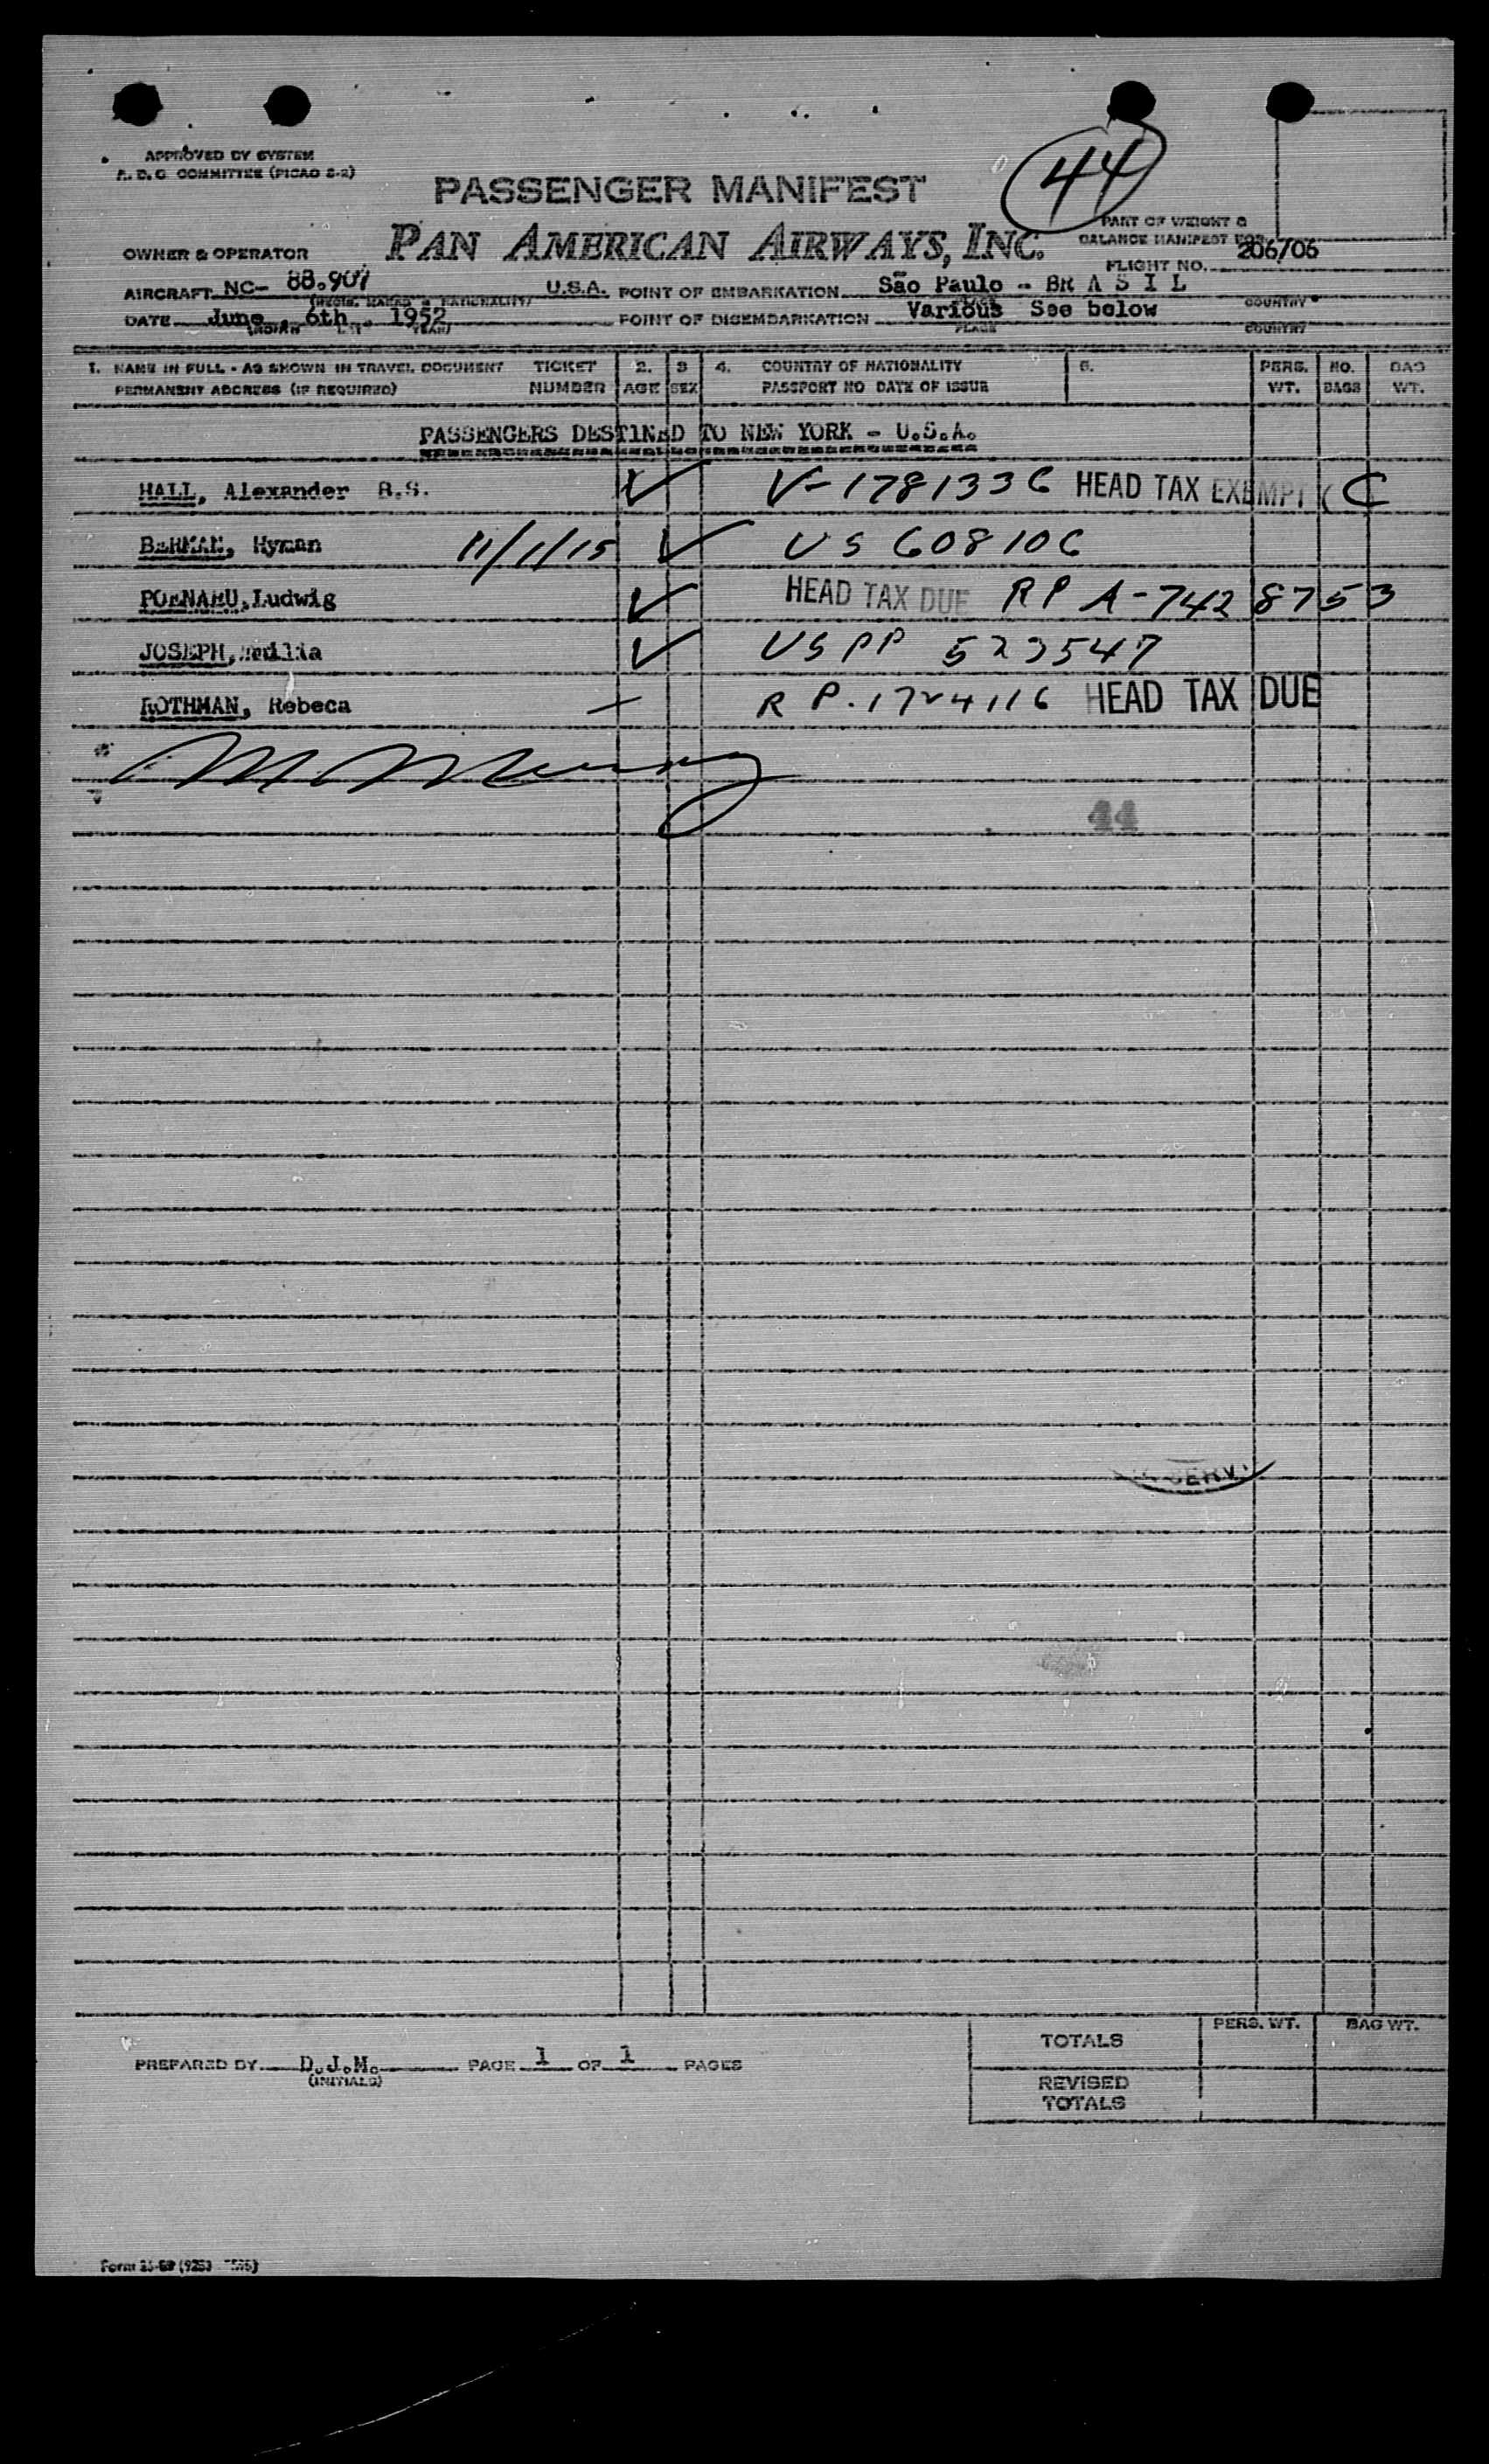 APPROVED BY SYSTEM
A. D. C. COMMITTEE (PICAO 2-2)
44
PASSENGER MANIFEST
PAN AMERICAN AIRWAYS, INC.
PART OF WEIGHT &
BALANCE MANIFEST FOR
OWNER & OPERATOR
FLIGHT NO. 206/06
AIRCRAFT NC- 88.907 U.S.A. POINT OF EMBARKATION São Paulo - BR A S I L
(REGIS. MARKS & NATIONALITY) PLACE COUNTRY
DATE June 6th 1952 POINT OF DISEMBARKATION Various See below
YEAR) PLACE COUNTRY
1. NAME IN FULL - AS SHOWN IN TRAVEL DOCUMENT TICKET 2. 3 4. COUNTRY OF NATIONALITY PERS. NO. BAG
PERMANENT ADDRESS (IF REQUIRED) NUMBER AGE SEX PASSPORT NO DATE OF ISSUE WT. BAGS WT.
PASSENGERS DESTINED TO NEW YORK - U.S.A.
HALL, Alexander R.S. V-1781336 HEAD TAX EXEMPT C
BERMAN, Hyman 11/1/15 US 608106
POENARU, Ludwig HEAD TAX DUE RP A-7428753
JOSEPH, USPP 523547
ROTHMAN, Rebeca R P. 1724116 HEAD TAX DUE
44
SERV.
PERS. WT. BAG WT.
TOTALS
PREPARED BY D.J.M. PAGE 1 OF 1 PAGES
(INITIALS)
REVISED
TOTALS
Form